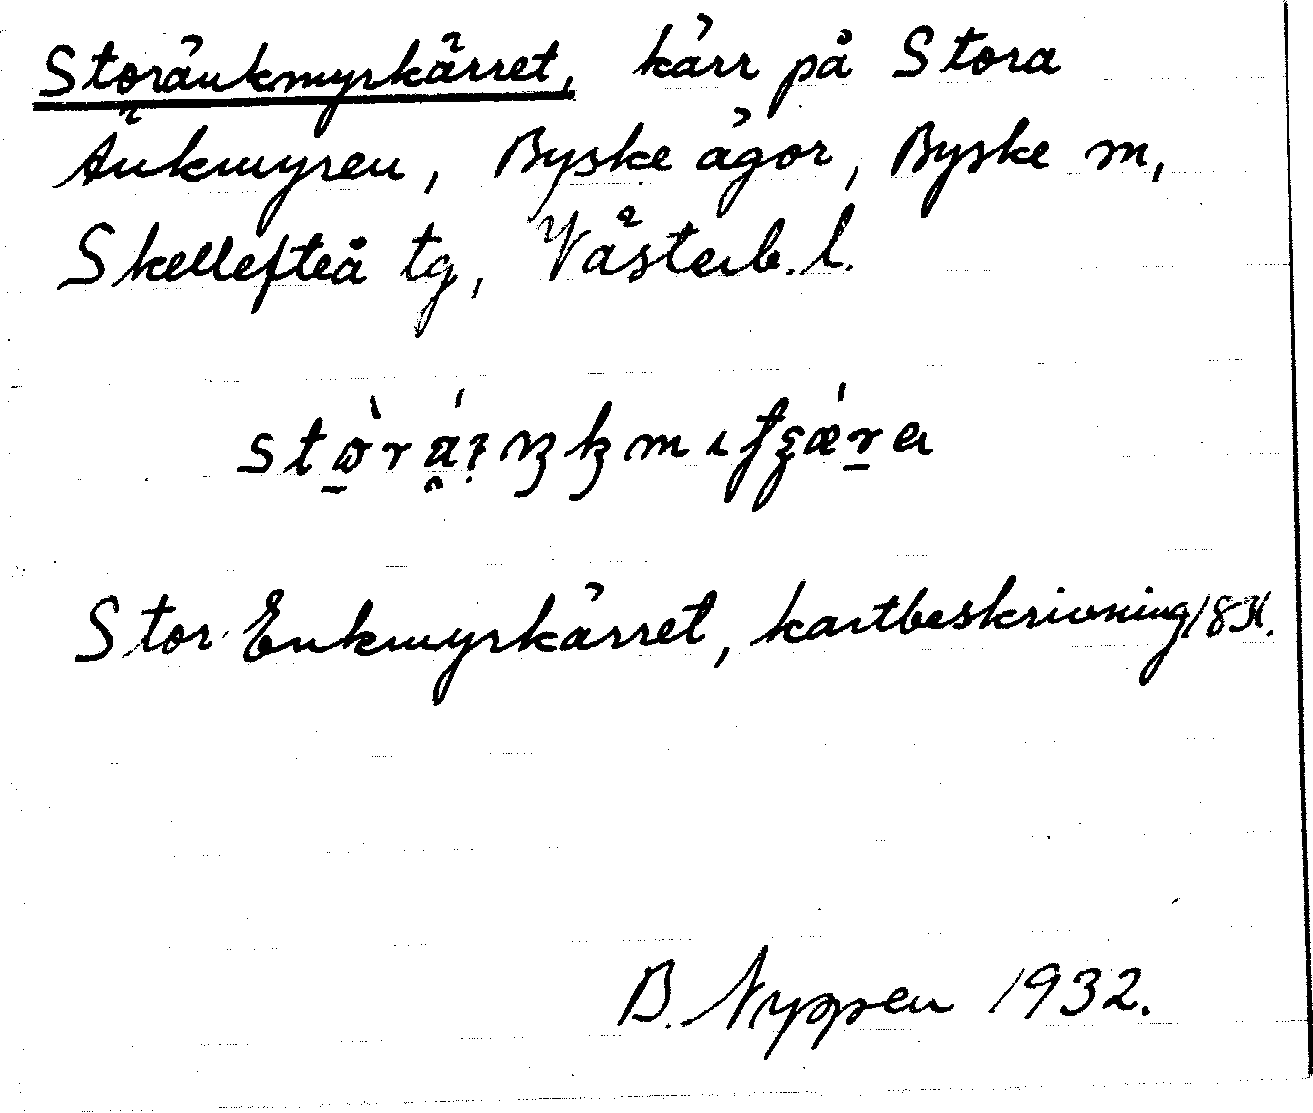 Storänkmyrkärret, kärr på Stora
Änkmyren, Byske ägor, Byske m,
Skellefteå tg, Västerb. l.
Stor Enkmyrkärret, kartbeskrivning 1831.
B. Nyppen 1932.